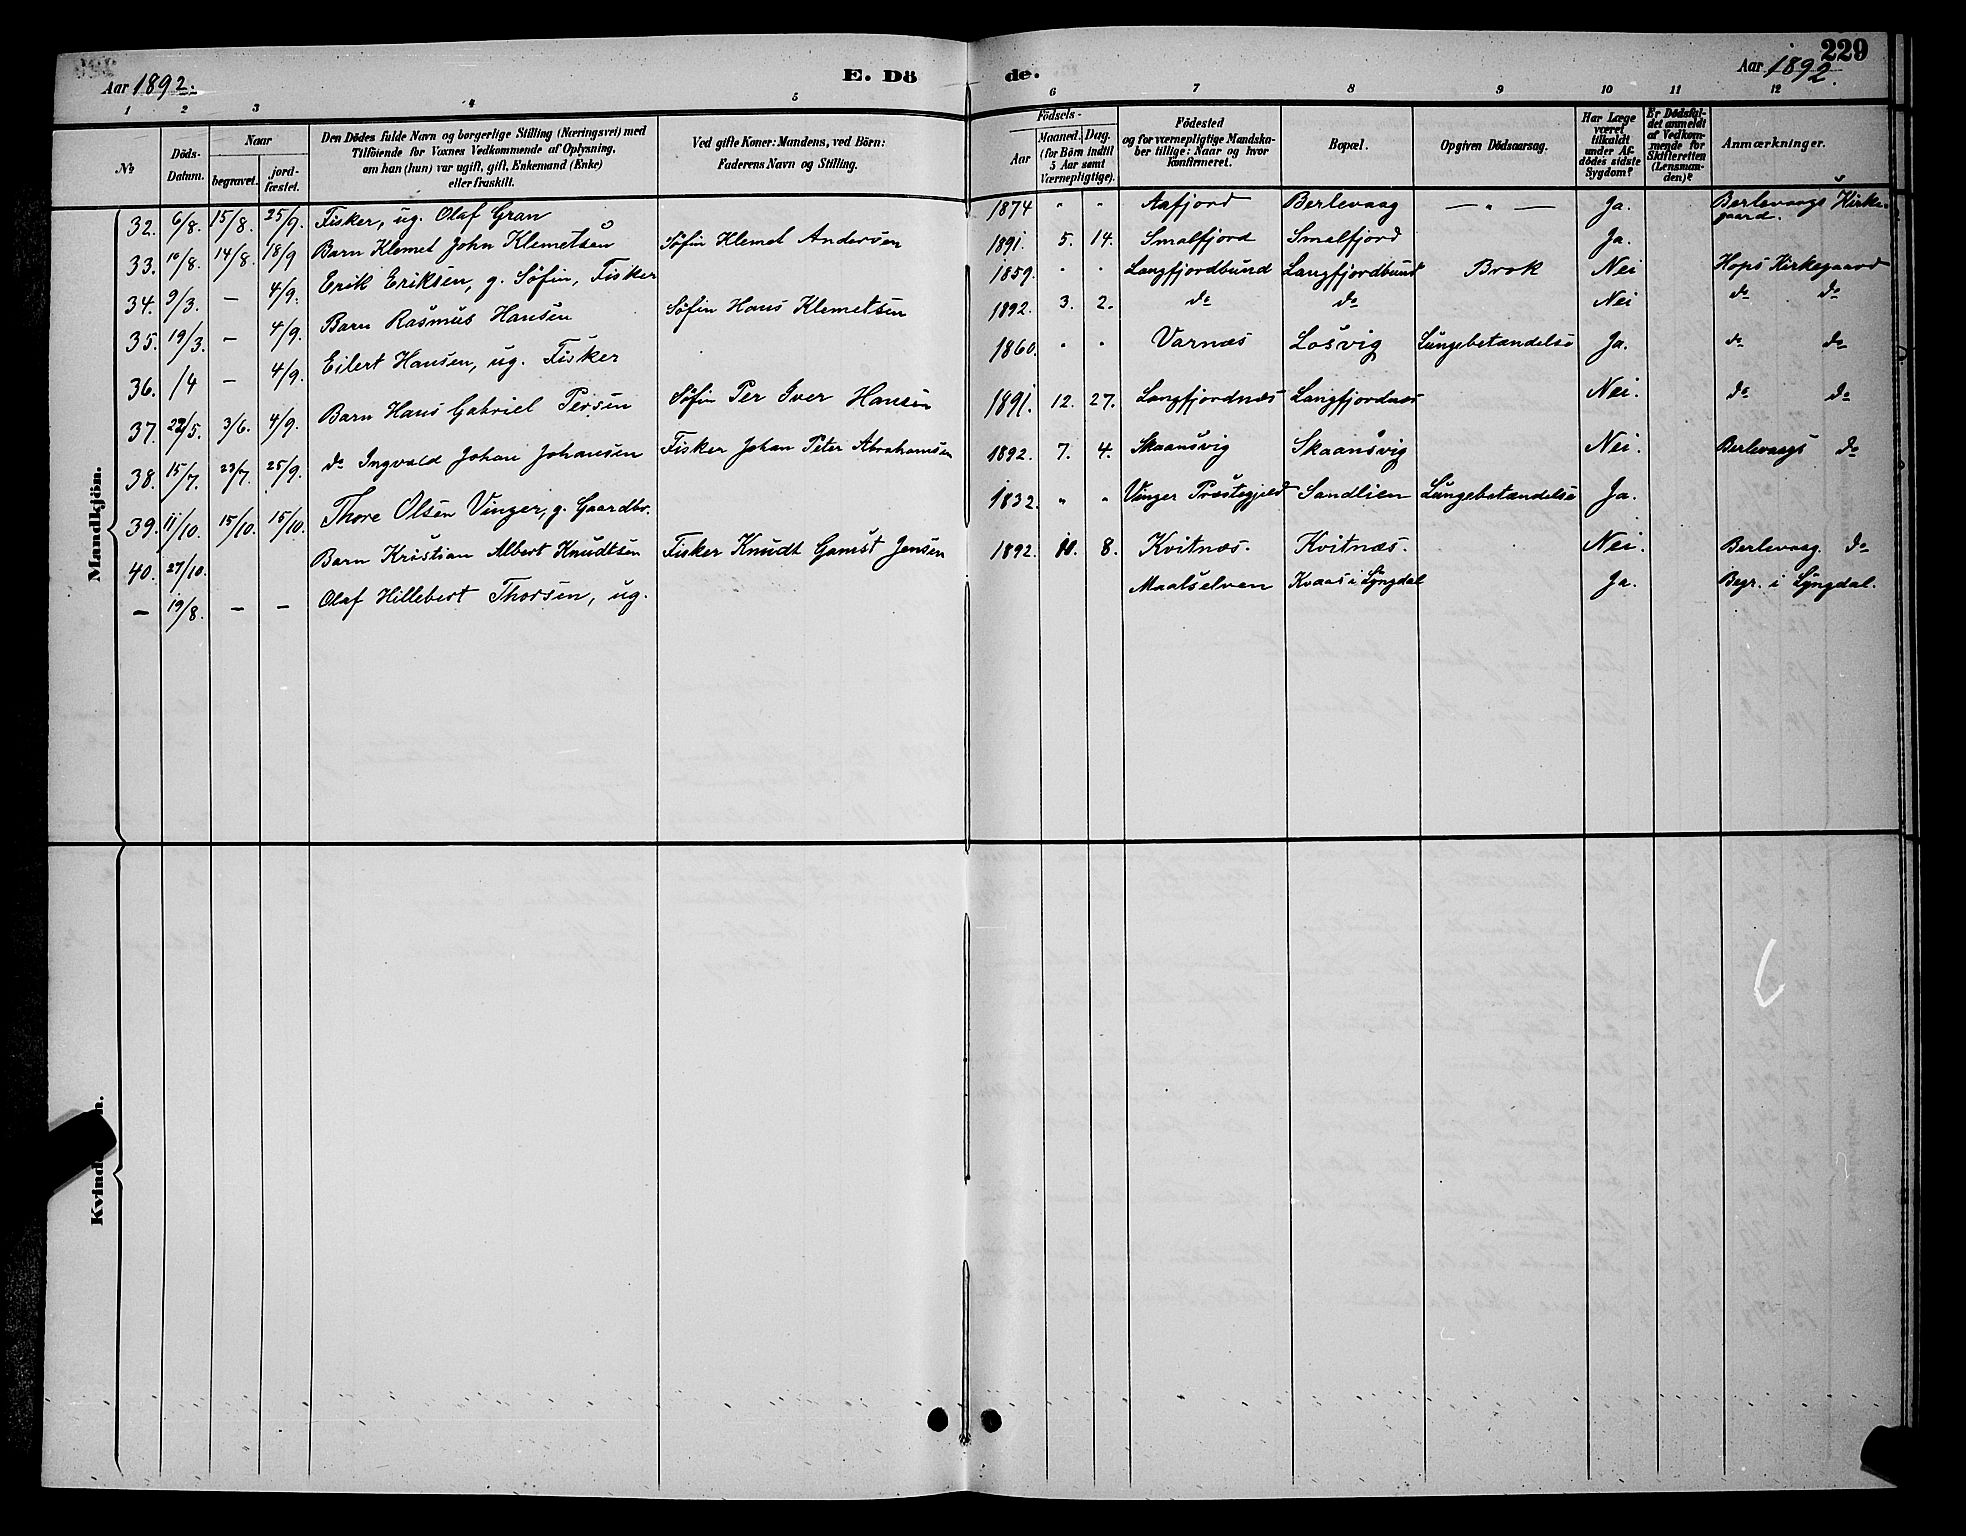 229
Aar 1892. E. Dö de. Aar 1892.
1 2 3 4 5 6 7 8 9 10 11 12
№
Döds-Datum.
Naar
begravet.
jord-fæstet.
Den Dödes fulde Navn og borgerlige Stilling (Næringsvei) med
Tilföiende for Voxnes Vedkommende af Oplysning,
om han (hun) var ugift, gift, Enkemand (Enke)
eller fraskilt.
Ved gifte Koner: Mandens, ved Börn:
Faderens Navn og Stilling.
Födsels-
Aar
Maaned. Dag.
(for Börn indtil
5 Aar samt
Værnepligtige).
Födested
og for værnepligtige Mandska-
ber tillige: Naar og hvor
konfirmeret.
Bopæl.
Opgiven Dödsaarsag.
Har Læge
været
tilkaldt
under Af-
dödes sidste
Sygdom?
Er Dödsfal-
det anmeldt
af Vedkom-
mende for
Skifteretten
(Lensman-
den)?
Anmærkninger.
Mandkjön.
32. 6/8. 15/8. 25/9. Fisker, ug. Olaf Gran 1874 " " Aafjord Berlevaag — " — Ja. Berlevaags Kirke-
gaard.
33. 10/8. 14/8. 18/9 Barn Klemet John Klemetsen Søfin Klemet Andersen 1891. 5. 14. Smalfjord Smalfjord Ja.
34. 9/3. — 4/9. Erik Eriksen, g. Søfin, Fisker 1859. " " Langfjordbund Langfjordbund Brok Nei Hops Kirkegaard
35. 19/3. — 4/9. Barn Rasmus Hansen Søfin Hans Klemetsen 1892. 3. 2. do do Nei do do
36. /4 — 4/9. Eilert Hansen, ug. Fisker 1860. " " Varnæs Losvig Lungebetændelse Ja. do do
37. 22/5. 3/6. 4/9. Barn Hans Gabriel Persen Søfin Per Iver Hansen 1891. 12. 27. Langfjordnæs Langfjordnæs Nei. do do
38. 15/7. 23/7. 25/9. do Ingvald Johan Johansen Fisker Johan Peter Abrahamsen 1892. 7. 4. Skaansvig Skaansvig Nei. Berlevaags do
39. 11/10. 15/10. 15/10. Thore Olsen Vinger, g. Gaardbr. 1832. " " Vinger Præstegjeld Sandlien Lungebetændelse Ja.
40. 27/10. Barn Kristian Albert Knudtsen Fisker Knudt Gamst Jensen 1892. 8. Kvitnæs. Kvitnæs. Nei. Berlevaag. do
— 19/8. — — Olaf Hillebert Thorsen, ug. Maalselven Kvaas i Lyngdal Ja. Begr. i Lyngdal.